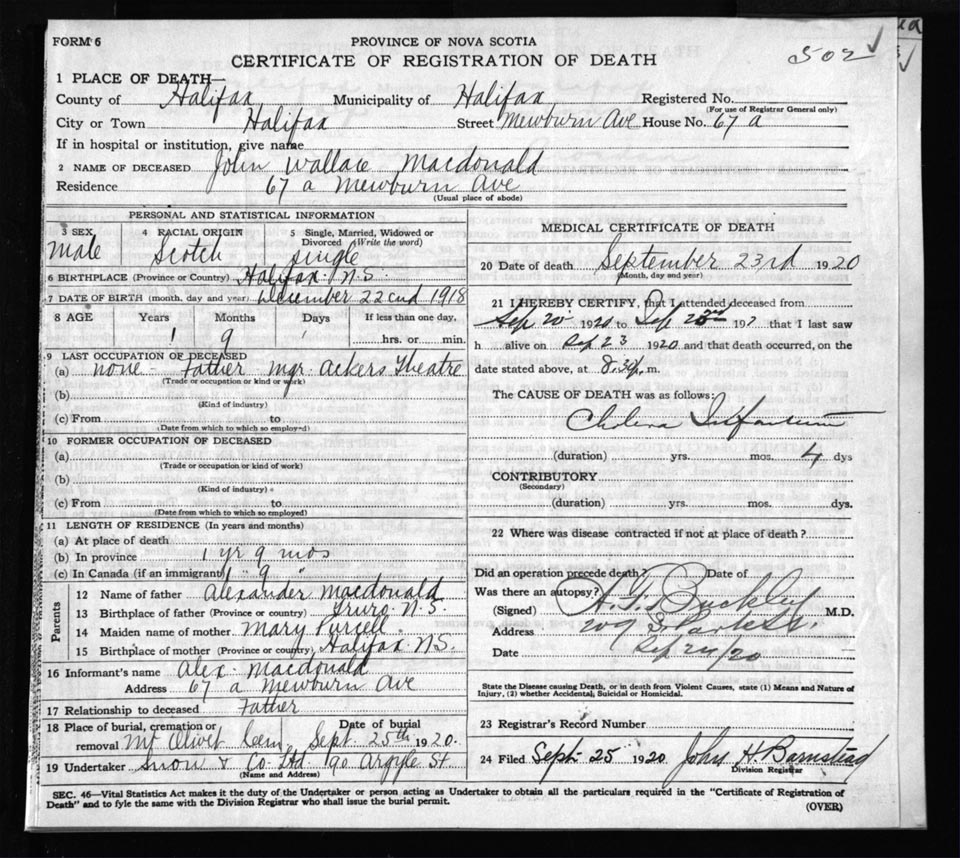 FORM 6
PROVINCE OF NOVA SCOTIA
502 ✓
CERTIFICATE OF REGISTRATION OF DEATH
1 PLACE OF DEATH—
County of Halifax Municipality of Halifax Registered No.
(For use of Registrar General only)
City or Town Halifax Street Mewburn Ave House No. 67 a
If in hospital or institution, give name
2 NAME OF DECEASED John Wallace Macdonald
Residence 67 a Mewburn Ave
(Usual place of abode)
PERSONAL AND STATISTICAL INFORMATION
3 SEX Male
4 RACIAL ORIGIN Scotch
5 Single, Married, Widowed or Divorced (Write the word) Single
6 BIRTHPLACE (Province or Country) Halifax N.S.
7 DATE OF BIRTH (month, day and year) December 22nd 1918
8 AGE Years Months Days If less than one day,
1 9 hrs. or min.
9 LAST OCCUPATION OF DECEASED
(a) none - Father mgr. Ackers Theatre
(Trade or occupation or kind or work)
(b)
(Kind of industry)
(c) From to
(Date from which to which so employed)
10 FORMER OCCUPATION OF DECEASED
(a)
(Trade or occupation or kind of work)
(b)
(Kind of industry)
(c) From to
(Date from which to which so employed)
11 LENGTH OF RESIDENCE (In years and months)
(a) At place of death
(b) In province 1 yr 9 mos
(c) In Canada (if an immigrant) 1 " 9 "
Parents
12 Name of father Alexander Macdonald
13 Birthplace of father (Province or country) Truro N.S.
14 Maiden name of mother Mary Purcell.
15 Birthplace of mother (Province or country) Halifax N.S.
16 Informant's name Alex. Macdonald
Address 67 a Mewburn Ave
17 Relationship to deceased Father
18 Place of burial, cremation or removal Mt Olivet Cem Date of burial Sept. 25th 1920.
19 Undertaker Snow & Co Ltd 90 Argyle St
(Name and Address)
MEDICAL CERTIFICATE OF DEATH
20 Date of death September 23rd 1920
(Month, day and year)
21 I HEREBY CERTIFY, that I attended deceased from
Sep 20 1920 to Sep 192 that I last saw
h alive on Sep 23 1920 and that death occurred, on the
date stated above, at m.
The CAUSE OF DEATH was as follows:
Cholera Infantum
(duration) yrs. mos. 4 dys
CONTRIBUTORY
(Secondary)
(duration) yrs. mos. dys.
22 Where was disease contracted if not at place of death?
Did an operation precede death? Date of
Was there an autopsy?
(Signed) Buckley M.D.
Address
Date Sep 24/20
State the Disease causing Death, or in death from Violent Causes, state (1) Means and Nature of
Injury, (2) whether Accidental, Suicidal or Homicidal.
23 Registrar's Record Number
24 Filed Sept 25 1920 John H. Barnstead
Division Registrar
SEC. 46—Vital Statistics Act makes it the duty of the Undertaker or person acting as Undertaker to obtain all the particulars required in the "Certificate of Registration of
Death" and to fyle the same with the Division Registrar who shall issue the burial permit.
(OVER)